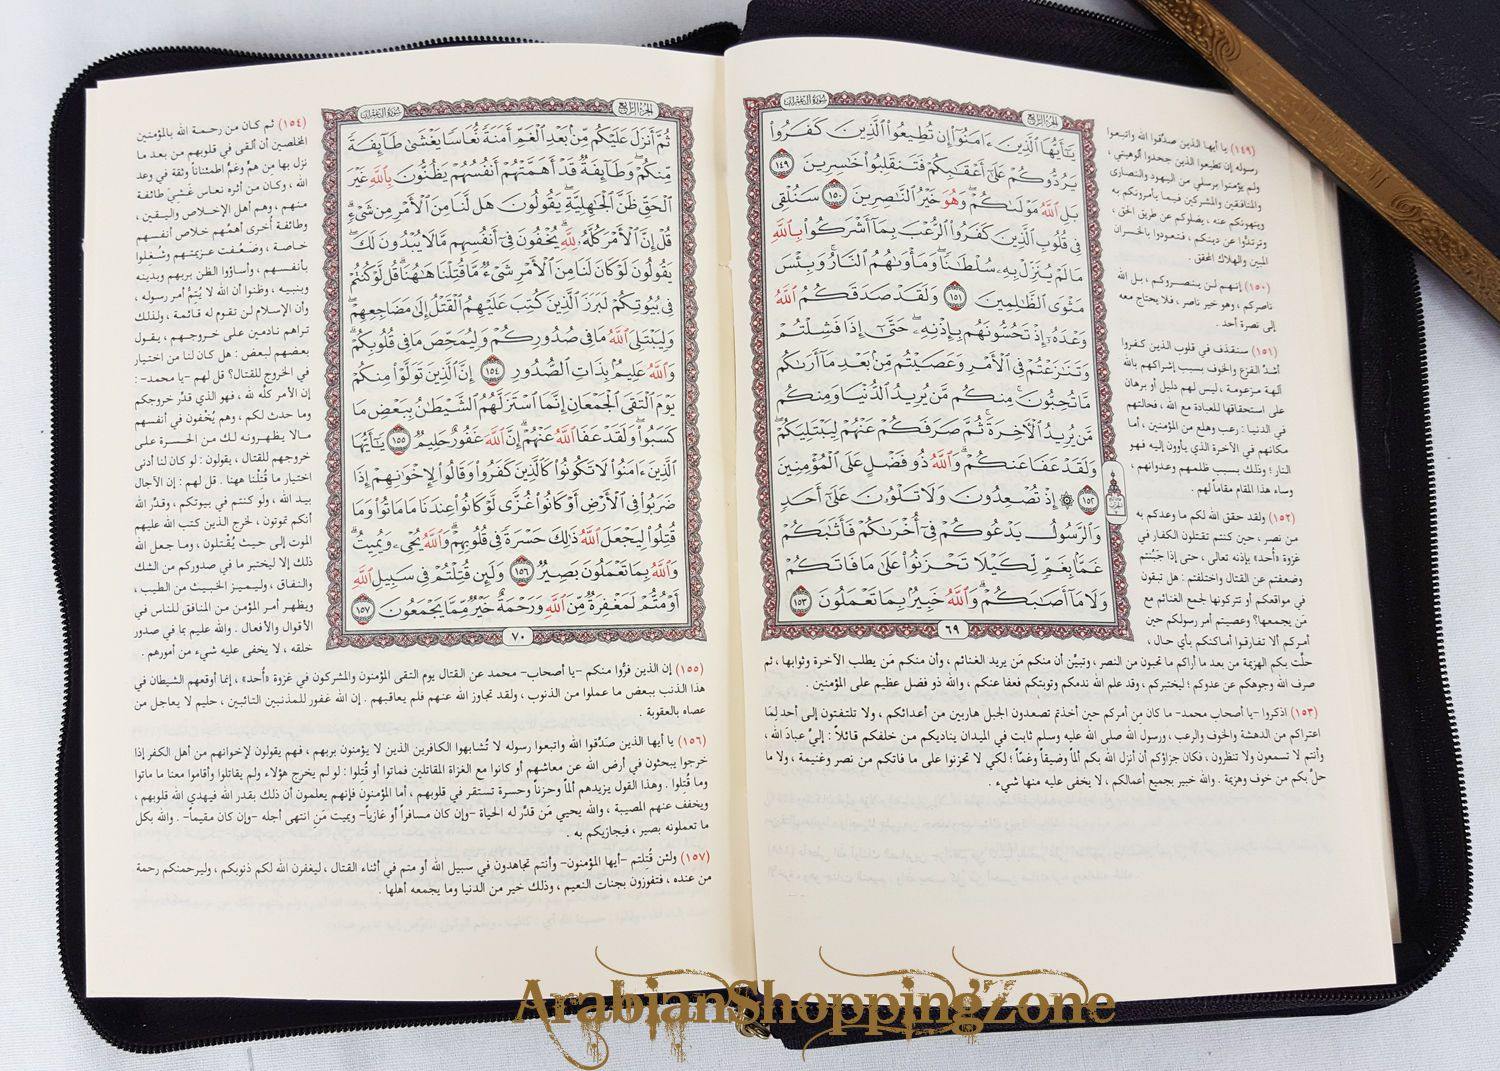 سورة آل عمران
الجزء الرابع
يَٰٓأَيُّهَا ٱلَّذِينَ ءَامَنُوٓا۟ إِن تُطِيعُوا۟ ٱلَّذِينَ كَفَرُوا۟
يَرُدُّوكُمْ عَلَىٰٓ أَعْقَٰبِكُمْ فَتَنقَلِبُوا۟ خَٰسِرِينَ ١٤٩
بَلِ ٱللَّهُ مَوْلَىٰكُمْ ۖ وَهُوَ خَيْرُ ٱلنَّٰصِرِينَ ١٥٠ سَنُلْقِى
فِى قُلُوبِ ٱلَّذِينَ كَفَرُوا۟ ٱلرُّعْبَ بِمَآ أَشْرَكُوا۟ بِٱللَّهِ
مَا لَمْ يُنَزِّلْ بِهِۦ سُلْطَٰنًا ۖ وَمَأْوَىٰهُمُ ٱلنَّارُ ۚ وَبِئْسَ
مَثْوَى ٱلظَّٰلِمِينَ ١٥١ وَلَقَدْ صَدَقَكُمُ ٱللَّهُ
وَعْدَهُۥٓ إِذْ تَحُسُّونَهُم بِإِذْنِهِۦ ۖ حَتَّىٰٓ إِذَا فَشِلْتُمْ
وَتَنَٰزَعْتُمْ فِى ٱلْأَمْرِ وَعَصَيْتُم مِّنۢ بَعْدِ مَآ أَرَىٰكُم
مَّا تُحِبُّونَ ۚ مِنكُم مَّن يُرِيدُ ٱلدُّنْيَا وَمِنكُم
مَّن يُرِيدُ ٱلْءَاخِرَةَ ۚ ثُمَّ صَرَفَكُمْ عَنْهُمْ لِيَبْتَلِيَكُمْ ۖ
وَلَقَدْ عَفَا عَنكُمْ ۗ وَٱللَّهُ ذُو فَضْلٍ عَلَى ٱلْمُؤْمِنِينَ
١٥٢ ۞ إِذْ تُصْعِدُونَ وَلَا تَلْوُۥنَ عَلَىٰٓ أَحَدٍ
وَٱلرَّسُولُ يَدْعُوكُمْ فِىٓ أُخْرَىٰكُمْ فَأَثَٰبَكُمْ
غَمًّۢا بِغَمٍّ لِّكَيْلَا تَحْزَنُوا۟ عَلَىٰ مَا فَاتَكُمْ
وَلَا مَآ أَصَٰبَكُمْ ۗ وَٱللَّهُ خَبِيرٌۢ بِمَا تَعْمَلُونَ ١٥٣
٦٩
(١٤٩) يا أيها الذين صدَّقوا الله واتبعوا
رسوله إن تطيعوا الذين جحدوا ألوهيتي ،
ولم يؤمنوا برسلي من اليهود والنصارى
والمنافقين والمشركين فيما يأمرونكم به
وينهونكم عنه ، يضلوكم عن طريق الحق ،
وترتدُّوا عن دينكم ، فتعودوا بالخسران
المبين والهلاك المحقق .
(١٥٠) إنهم لن ينصروكم ، بل الله
ناصركم ، وهو خير ناصر ، فلا يحتاج معه
إلى نصرة أحد .
(١٥١) سنقذف في قلوب الذين كفروا
أشدَّ الفزع والخوف بسبب إشراكهم بالله
آلهة مزعومة ، ليس لهم دليل أو برهان
على استحقاقها للعبادة مع الله ، فحالتهم
في الدنيا : رعب وهلع من المؤمنين ، أما
مكانهم في الآخرة الذي يأوون إليه فهو
النار ؛ وذلك بسبب ظلمهم وعدوانهم ،
وساء هذا المقام مقاماً لهم .
(١٥٢) ولقد حقق الله لكم ما وعدكم به
من نصر ، حين كنتم تقتلون الكفار في
غزوة «أُحد» بإذنه تعالى ، حتى إذا جَبُنتم
وضعفتم عن القتال واختلفتم : هل تبقون
في مواقعكم أو تتركونها لجمع الغنائم مع
مَن يجمعها؟ وعصيتم أمر رسولكم حين
أمركم ألا تفارقوا أماكنكم بأي حال ،
حلَّت بكم الهزيمة من بعد ما أراكم ما تحبون من النصر ، وتبيَّن أن منكم مَن يريد الغنائم ، وأن منكم مَن يطلب الآخرة وثوابها ، ثم
صرف الله وجوهكم عن عدوكم ؛ ليختبركم ، وقد علم الله ندمكم وتوبتكم فعفا عنكم ، والله ذو فضل عظيم على المؤمنين .
(١٥٣) اذكروا –يا أصحاب محمد– ما كان من أمركم حين أخذتم تصعدون الجبل هاربين من أعدائكم ، ولا تلتفتون إلى أحد لِمَا
اعتراكم من الدهشة والخوف والرعب ، ورسول الله صلى الله عليه وسلم ثابت في الميدان يناديكم من خلفكم قائلاً : إليَّ عبادَ الله ،
وأنتم لا تسمعون ولا تنظرون ، فكان جزاؤكم أن أنزل الله بكم ألماً وضيقاً وغمّاً ؛ لكي لا تحزنوا على ما فاتكم من نصر وغنيمة ، ولا ما
حلَّ بكم من خوف وهزيمة . والله خبير بجميع أعمالكم ، لا يخفى عليه منها شيء .
سورة آل عمران
الجزء الرابع
ثُمَّ أَنزَلَ عَلَيْكُم مِّنۢ بَعْدِ ٱلْغَمِّ أَمَنَةً نُّعَاسًا يَغْشَىٰ طَآئِفَةً
مِّنكُمْ ۖ وَطَآئِفَةٌ قَدْ أَهَمَّتْهُمْ أَنفُسُهُمْ يَظُنُّونَ بِٱللَّهِ غَيْرَ
ٱلْحَقِّ ظَنَّ ٱلْجَٰهِلِيَّةِ ۖ يَقُولُونَ هَل لَّنَا مِنَ ٱلْأَمْرِ مِن شَىْءٍ ۗ
قُلْ إِنَّ ٱلْأَمْرَ كُلَّهُۥ لِلَّهِ ۗ يُخْفُونَ فِىٓ أَنفُسِهِم مَّا لَا يُبْدُونَ لَكَ ۖ
يَقُولُونَ لَوْ كَانَ لَنَا مِنَ ٱلْأَمْرِ شَىْءٌ مَّا قُتِلْنَا هَٰهُنَا ۗ قُل لَّوْ كُنتُمْ
فِى بُيُوتِكُمْ لَبَرَزَ ٱلَّذِينَ كُتِبَ عَلَيْهِمُ ٱلْقَتْلُ إِلَىٰ مَضَاجِعِهِمْ ۖ
وَلِيَبْتَلِىَ ٱللَّهُ مَا فِى صُدُورِكُمْ وَلِيُمَحِّصَ مَا فِى قُلُوبِكُمْ ۗ
وَٱللَّهُ عَلِيمٌۢ بِذَاتِ ٱلصُّدُورِ ١٥٤ إِنَّ ٱلَّذِينَ تَوَلَّوْا۟ مِنكُمْ
يَوْمَ ٱلْتَقَى ٱلْجَمْعَانِ إِنَّمَا ٱسْتَزَلَّهُمُ ٱلشَّيْطَٰنُ بِبَعْضِ مَا
كَسَبُوا۟ ۖ وَلَقَدْ عَفَا ٱللَّهُ عَنْهُمْ ۗ إِنَّ ٱللَّهَ غَفُورٌ حَلِيمٌ ١٥٥ يَٰٓأَيُّهَا
ٱلَّذِينَ ءَامَنُوا۟ لَا تَكُونُوا۟ كَٱلَّذِينَ كَفَرُوا۟ وَقَالُوا۟ لِإِخْوَٰنِهِمْ إِذَا
ضَرَبُوا۟ فِى ٱلْأَرْضِ أَوْ كَانُوا۟ غُزًّى لَّوْ كَانُوا۟ عِندَنَا مَا مَاتُوا۟ وَمَا
قُتِلُوا۟ لِيَجْعَلَ ٱللَّهُ ذَٰلِكَ حَسْرَةً فِى قُلُوبِهِمْ ۗ وَٱللَّهُ يُحْىِۦ وَيُمِيتُ ۗ
وَٱللَّهُ بِمَا تَعْمَلُونَ بَصِيرٌ ١٥٦ وَلَئِن قُتِلْتُمْ فِى سَبِيلِ ٱللَّهِ
أَوْ مُتُّمْ لَمَغْفِرَةٌ مِّنَ ٱللَّهِ وَرَحْمَةٌ خَيْرٌ مِّمَّا يَجْمَعُونَ ١٥٧
٧٠
(١٥٤) ثم كان من رحمة الله بالمؤمنين
المخلصين أن ألقى في قلوبهم من بعد ما
نزل بها من همٍّ وغمٍّ اطمئناناً وثقة في وعد
الله ، وكان من أثره نعاس غَشِيَ طائفة
منهم ، وهم أهل الإخلاص واليقين ،
وطائفة أُخرى أهمَّهم خلاص أنفسهم
خاصة ، وضَعُفت عزيمتهم وشُغلوا
بأنفسهم ، وأساؤوا الظن بربهم وبدينه
وبنبيه ، وظنوا أن الله لا يُتمُّ أمر رسوله ،
وأن الإسلام لن تقوم له قائمة ، ولذلك
تراهم نادمين على خروجهم ، يقول
بعضهم لبعض : هل كان لنا من اختيار
في الخروج للقتال؟ قل لهم –يا محمد– :
إن الأمر كلَّه لله ، فهو الذي قدَّر خروجكم
وما حدث لكم ، وهم يُخْفون في أنفسهم
مالا يظهرونه لك من الحسرة على
خروجهم للقتال ، يقولون : لو كان لنا أدنى
اختيار ما قُتلنا ههنا . قل لهم : إن الآجال
بيد الله ، ولو كنتم في بيوتكم ، وقدَّر الله
أنكم تموتون ، لخرج الذين كتب الله عليهم
الموت إلى حيث يُقْتلون ، وما جعل الله
ذلك إلا ليختبر ما في صدوركم من الشك
والنفاق ، وليميز الخبيث من الطيب ،
ويظهر أمر المؤمن من المنافق للناس في
الأقوال والأفعال . والله عليم بما في صدور
خلقه ، لا يخفى عليه شيء من أمورهم .
(١٥٥) إن الذين فرُّوا منكم –يا أصحاب– محمد عن القتال يوم التقى المؤمنون والمشركون في غزوة «أُحد» ، إنما أوقعهم الشيطان في
هذا الذنب ببعض ما عملوا من الذنوب ، ولقد تجاوز الله عنهم فلم يعاقبهم . إن الله غفور للمذنبين التائبين ، حليم لا يعاجل من
عصاه بالعقوبة .
(١٥٦) يا أيها الذين صَدَّقوا الله واتبعوا رسوله لا تُشابهوا الكافرين الذين لا يؤمنون بربهم ، فهم يقولون لإخوانهم من أهل الكفر إذا
خرجوا يبحثون في أرض الله عن معاشهم أو كانوا مع الغزاة المقاتلين فماتوا أو قُتلوا : لو لم يخرج هؤلاء ولم يقاتلوا وأقاموا معنا ما ماتوا
وما قُتلوا . وهذا القول يزيدهم ألماً وحزناً وحسرة تستقر في قلوبهم ، أما المؤمنون فإنهم يعلمون أن ذلك بقدر الله فيهدي الله قلوبهم ،
ويخفف عنهم المصيبة ، والله يحيي مَن قدَّر له الحياة –وإن كان مسافراً أو غازياً– ويميت مَن انتهى أجله –وإن كان مقيماً– . والله بكل
ما تعملونه بصير ، فيجازيكم به .
(١٥٧) ولئن قُتلتم –أيها المؤمنون– وأنتم تجاهدون في سبيل الله أو متم في أثناء القتال ، ليغفرن الله لكم ذنوبكم ، وليرحمنكم رحمة
من عنده ، فتفوزون بجنات النعيم ، وذلك خير من الدنيا وما يجمعه أهلها .
ArabianShoppingZone